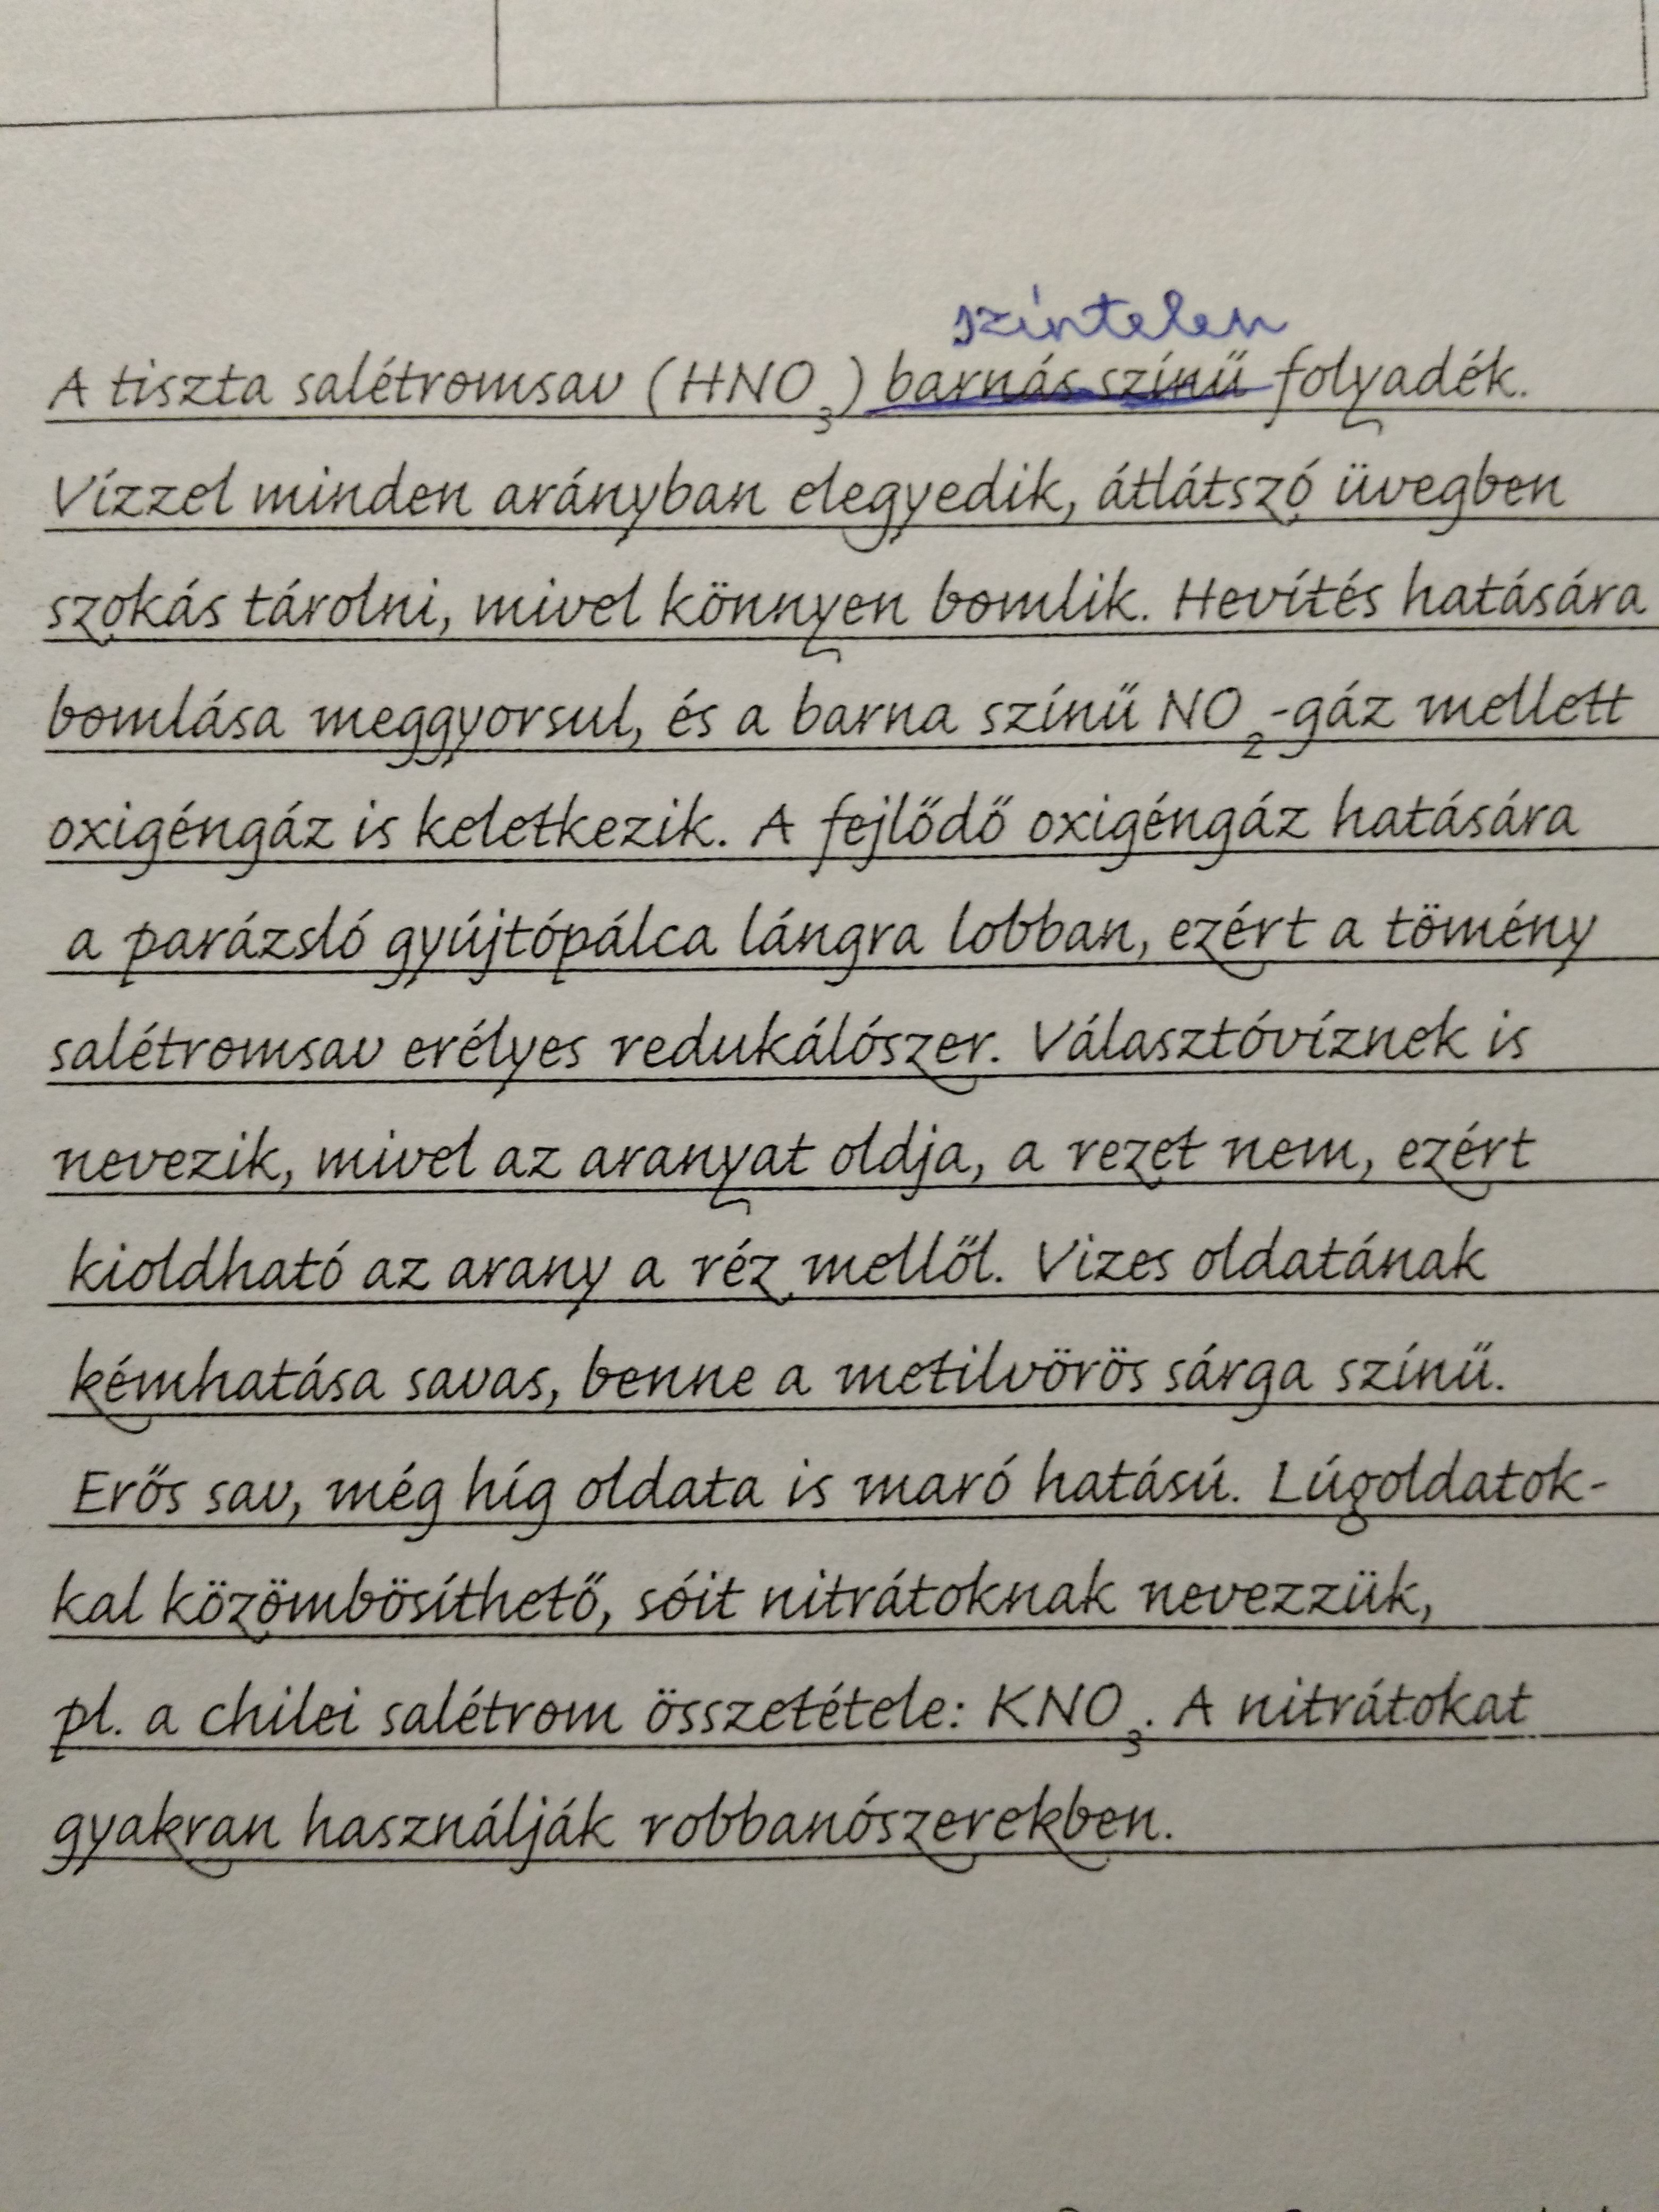 színtelen
A tiszta salétromsav (HNO3) barnás színű folyadék.
Vízzel minden arányban elegyedik, átlátszó üvegben
szokás tárolni, mivel könnyen bomlik. Hevítés hatására
bomlása meggyorsul, és a barna színű NO2-gáz mellett
oxigéngáz is keletkezik. A fejlődő oxigéngáz hatására
a parázsló gyújtópálca lángra lobban, ezért a tömény
salétromsav erélyes redukálószer. Választóvíznek is
nevezik, mivel az aranyat oldja, a rezet nem, ezért
kioldható az arany a réz mellől. Vizes oldatának
kémhatása savas, benne a metilvörös sárga színű.
Erős sav, még híg oldata is maró hatású. Lúgoldatok-
kal közömbösíthető, sóit nitrátoknak nevezzük,
pl. a chilei salétrom összetétele: KNO3. A nitrátokat
gyakran használják robbanószerekben.